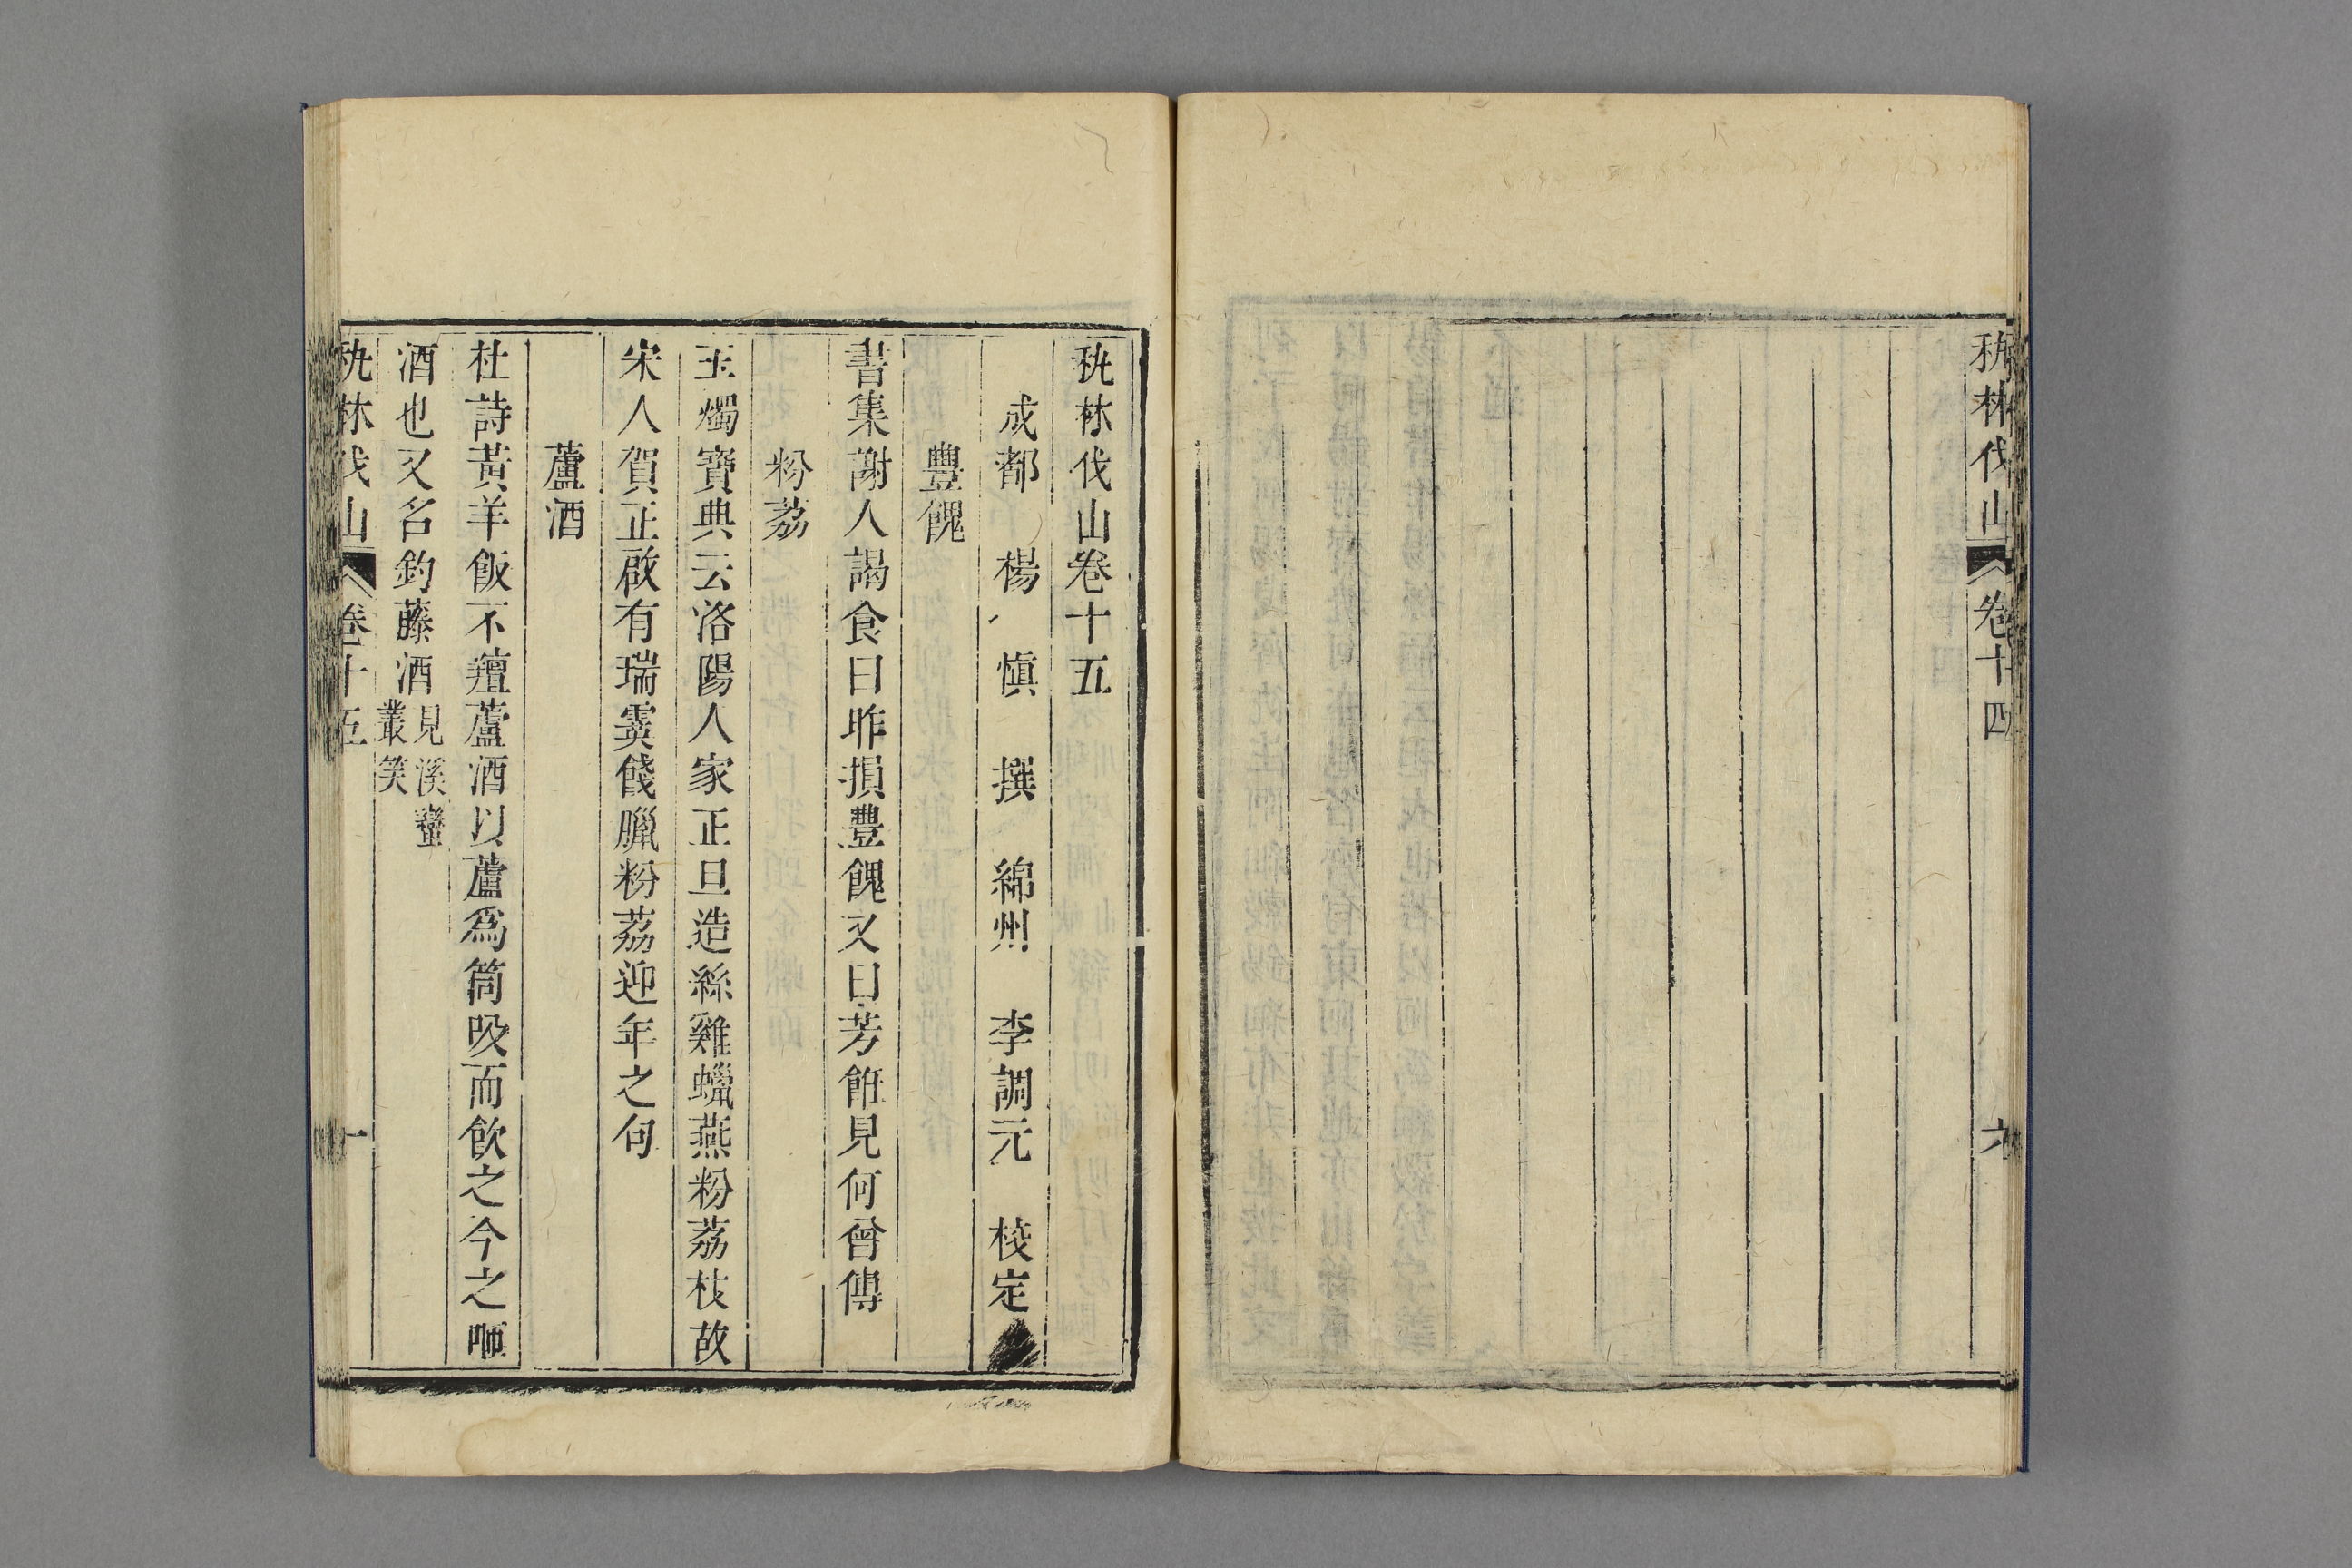 秇林伐山 卷十四 六
秇林伐山卷十五
成都 楊 愼 撰 綿州 李調元 校定
豐餽
書集謝人謁食曰昨損豐餽又曰芳飷見何曾傳
粉荔
玉燭寶典云洛陽人家正旦造絲雞蠟燕粉荔枝故
宋人賀正啟有瑞霙餞臘粉荔迎年之句
蘆酒
杜詩黃羊飯不羶蘆酒以蘆爲筒吸而飲之今之咂
酒也又名釣藤酒見溪蠻叢笑
秇林伐山 卷十五 一